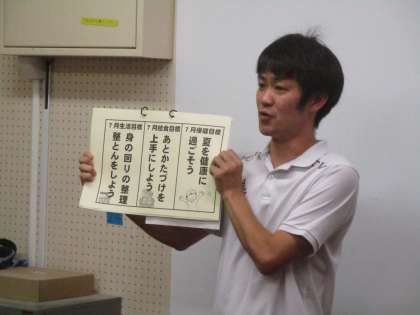 7月保健目標
夏を健康に
過ごそう
7月給食目標
あとかたづけを
上手にしよう
7月生活目標
身の回りの整理
整とんをしよう